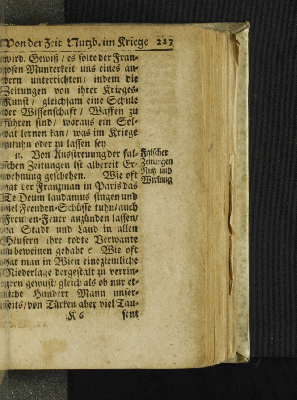 Von der Zeit Nutzb. im Kriege 223
wird. Gewiß / es solte der Fran-
zosen Munterkeit uns eines an-
dern unterrichten / indem die
Zeitungen von ihrer Krieges-
Kunst / gleichsam eine Schule
der Wissenschaft / Waffen zu
führen sind / woraus ein Sol-
dat lernen kan / was im Kriege
zuthun oder zu lassen sey.
11. Von Ausstreuung der fal-
schen Zeitungen ist albereit Er-
wehnung geschehen. Wie oft
hat der Franzman in Paris das
Te Deum laudamus singen und
viel Freuden-Schüsse tuhn / auch
Freuden-Feuer anzünden lassen /
da Stadt und Land in allen
Heusern ihre todte Verwante
zubeweinen gehabt? Wie oft
hat man in Wien eine ziemliche
Niederlage dergestalt zu verrin-
gern gewust / gleich als ob nur et-
liche Hundert Mann unser-
seits / von Türken aber viel Tau-
K 6 sent
Falscher
Zeitungen
Nutz und
Wirkung